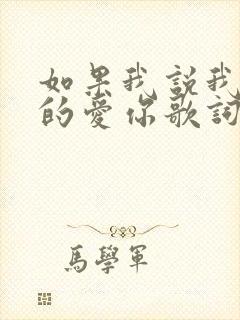 如果我說我
的愛你歌詞
馬學軍